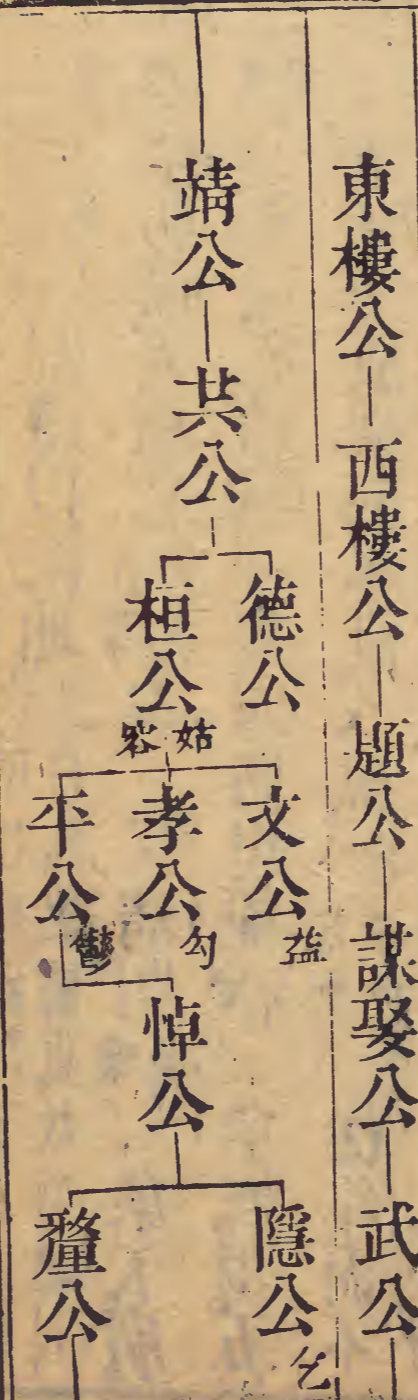 東樓公 西樓公 題公 謀娶公 武公
靖公 共公
德公
桓公 姑容
文公 益
孝公 匄
平公 鬱
悼公
隱公 乞
釐公